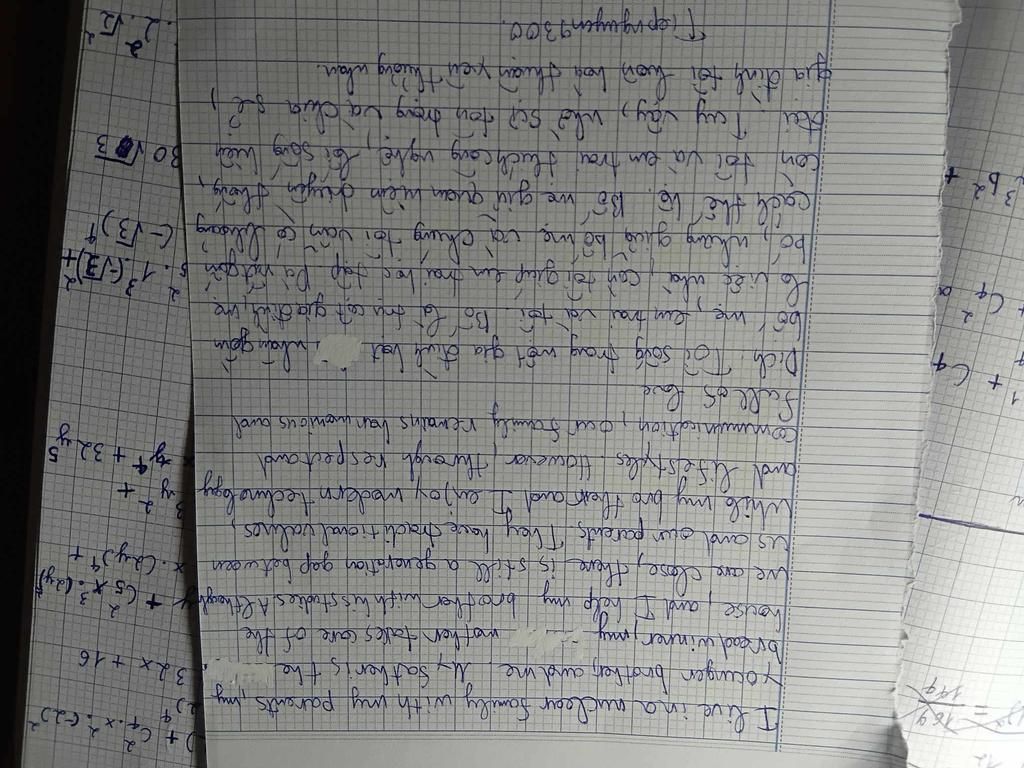 I live in a nuclear family with my parents, my
younger brother, and me. My father is the
breadwinner, my mother takes care of the
house, and I help my brother with his studies. Although
we are close, there is still a generation gap between
us and our parents. They have traditional values,
while my brother and I enjoy modern technology
and lifestyles. However, through respect and
communication, our family remains harmonious and
full of love
Dịch: Tôi sống trong một gia đình hạt nhân gồm
bố, mẹ, em trai và tôi. Bố là trụ cột gia đình, mẹ
lo việc nhà, còn tôi giúp em trai học tập. Dù rất gắn
bó, nhưng giữa bố mẹ và chúng tôi vẫn có khoảng
cách thế hệ. Bố mẹ giữ quan niệm truyền thống,
còn tôi và em trai thích công nghệ, lối sống hiện
đại. Tuy vậy, nhờ sự tôn trọng và chia sẻ,
gia đình tôi luôn hoà thuận yêu thương nhau.
Tiepnguyen9300.
32x + 16
+ 32y⁵
(-√3)⁴
30√3
2·√2
169
144